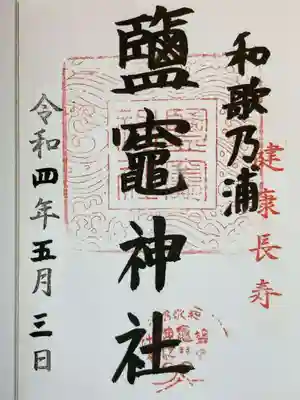 健康長寿
和歌乃浦
鹽竈神社
令和四年五月三日